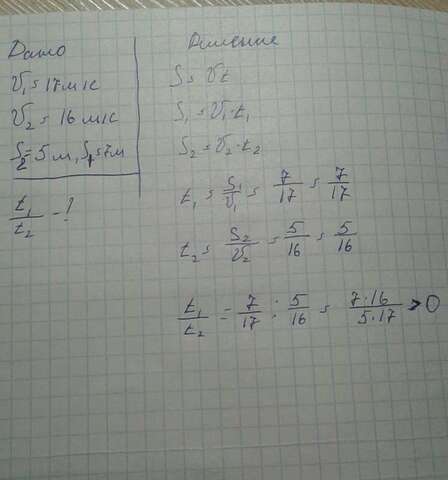 Дано
V₁ = 17 м/с
V₂ = 16 м/с
S₂ = 5 м, S₁ = 7м
t₁/t₂ - ?
Решение
S = Vt
S₁ = V₁·t₁
S₂ = V₂·t₂
t₁ = S₁/V₁ = 7/17 = 7/17
t₂ = S₂/V₂ = 5/16 = 5/16
t₁/t₂ = 7/17 : 5/16 = 7·16/5·17 > 0